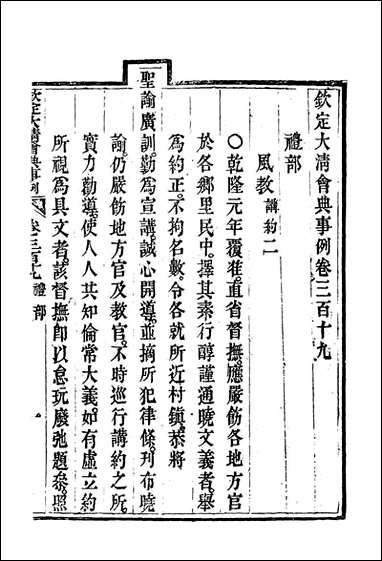 欽定大清會典事例卷三百十九
禮部
風教 講約二
○乾隆元年覆准。直省督撫。應嚴飭各地方官
於各鄉里民中。擇其素行醇謹通曉文義者。舉
為約正。不拘名數。令各就所近村鎮。恭將
聖諭廣訓。勤為宣講。誠心開導。並摘所犯律條。刊布曉
諭。仍嚴飭地方官及教官。不時巡行講約之所。
實力勸導。使人人共知倫常大義。如有虛立約
所視為具文者。該督撫卽以怠玩廢弛題參。照
欽定大清會典事例 卷三百十九 禮部